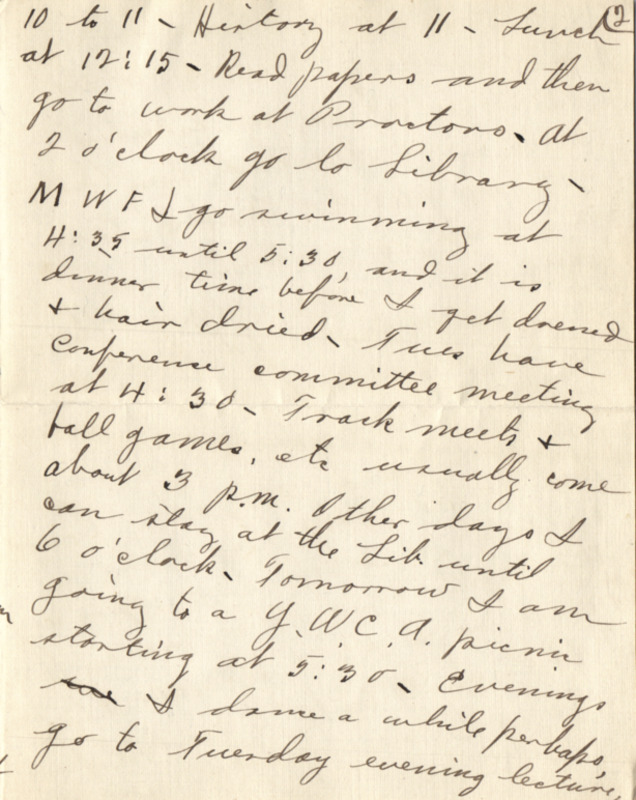 (2
10 to 11 - History at 11 - Lunch
at 12:15 - Read papers and then
go to work at Proctors. At
2 o'clock go to Library -
M W F I go swimming at
4:35 until 5:30, and it is
dinner time before I get dressed
+ hair dried - Tues have
conference committee meeting
at 4:30 - Track meets +
ball games, etc usually come
about 3 p.m. Other days I
can stay at the Lib. until
6 o'clock. Tomorrow I am
going to a Y.W.C.A. picnic
starting at 5:30 - Evenings
I dance a while perhaps,
go to Tuesday evening lecture,